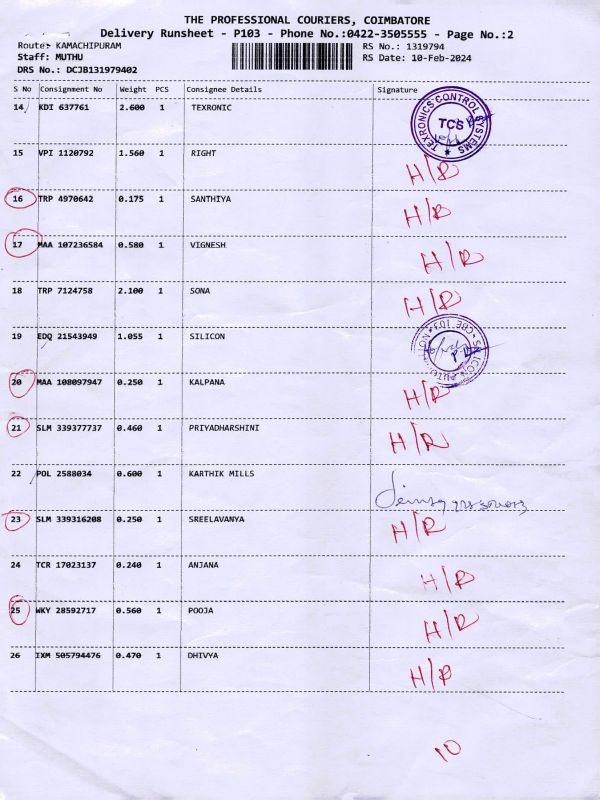 THE PROFESSIONAL COURIERS, COIMBATORE
Delivery Runsheet - P103 - Phone No.:0422-3505555 - Page No.:2
Route: KAMACHIPURAM RS No.: 1319794
Staff: MUTHU RS Date: 10-Feb-2024
DRS No.: DCJB131979402
S No Consignment No Weight PCS Consignee Details Signature
14 KDI 637761 2.600 1 TEXRONIC
TEXRONICS CONTROL SYSTEMS
TCS
15 VPI 1120792 1.560 1 RIGHT H/R
16 TRP 4970642 0.175 1 SANTHIYA H/R
17 MAA 107236584 0.580 1 VIGNESH H/R
18 TRP 7124758 2.100 1 SONA H/R
19 EDQ 21543949 1.055 1 SILICON
SILICON CBE 103
20 MAA 108097947 0.250 1 KALPANA H/R
21 SLM 339377737 0.460 1 PRIYADHARSHINI H/R
22 POL 2588034 0.600 1 KARTHIK MILLS
23 SLM 339316208 0.250 1 SREELAVANYA H/R
24 TCR 17023137 0.240 1 ANJANA H/R
25 WKY 28592717 0.560 1 POOJA H/R
26 IXM 505794476 0.470 1 DHIVYA H/R
10